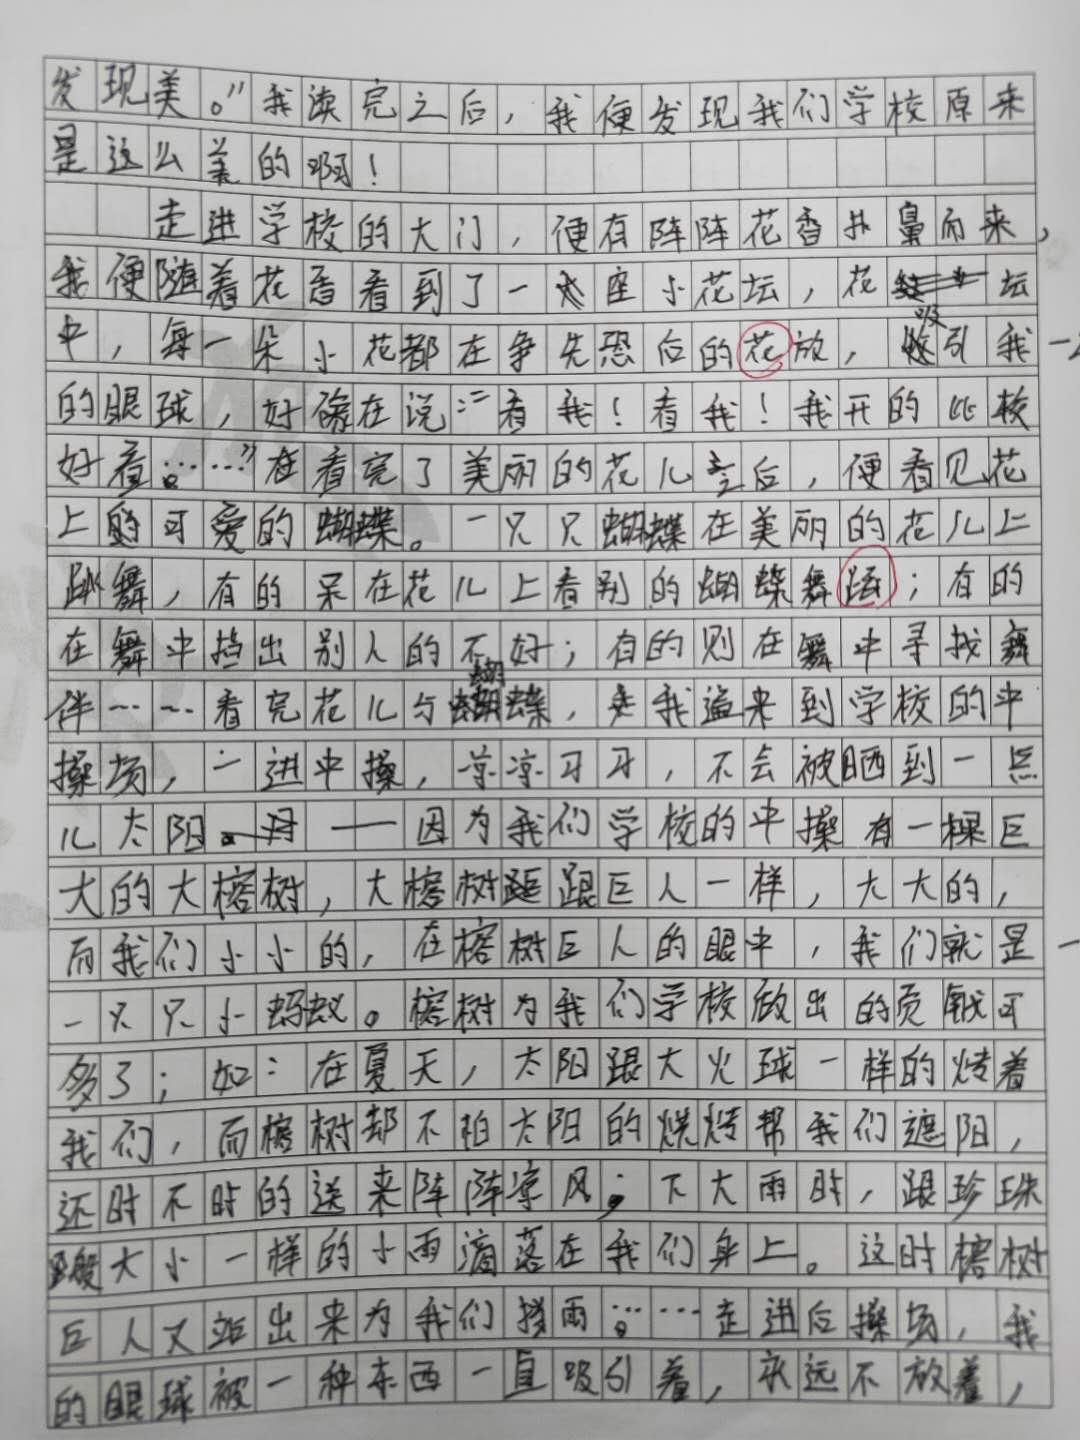 发现美。”我读完之后，我便发现我们学校原来
是这么美的啊！
走进学校的大门，便有阵阵花香扑鼻而来，
我便随着花香看到了一座小花坛，花坛
中，每一朵小花都在争先恐后的花放，吸引我
的眼球，好像在说：“看我！看我！我开的比较
好看……”在看完了美丽的花儿之后，便看见花
上的可爱的蝴蝶。一只只蝴蝶在美丽的花儿上
跳舞，有的呆在花儿上看别的蝴蝶舞蹈；有的
在舞中挡出别人的不好；有的则在舞中寻找舞
伴……看完花儿与蝴蝶，我追来到学校的中
操场，一进中操，凉凉习习，不会被晒到一点
儿太阳——因为我们学校的中操有一棵巨
大的大榕树，大榕树跟巨人一样，大大的，
而我们小小的，在榕树巨人的眼中，我们就是
一只只小蚂蚁。榕树为我们学校做出的贡献可
多了；如：在夏天，太阳跟大火球一样的烤着
我们，而榕树却不怕太阳的烘烤帮我们遮阳，
还时不时的送来阵阵凉风；下大雨时，跟珍珠
般大小一样的小雨滴落在我们身上。这时榕树
巨人又站出来为我们挡雨……走进后操场，我
的眼球被一种东西一直吸引着，永远不放着，